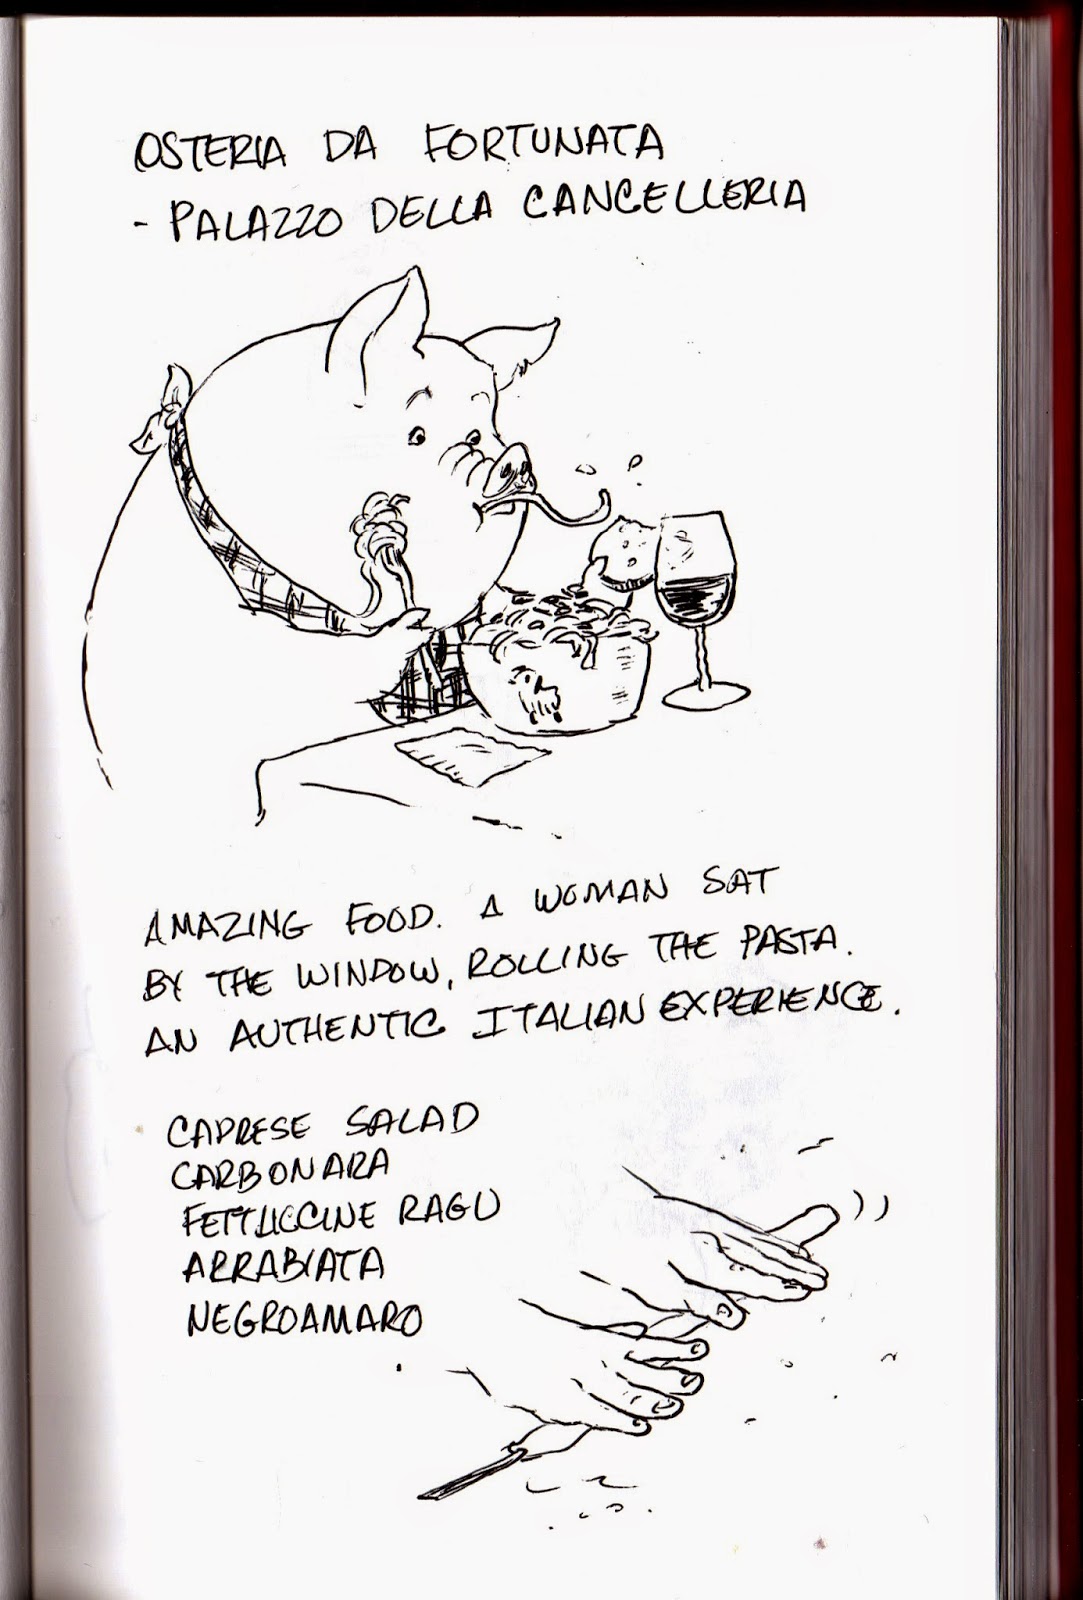 OSTERIA DA FORTUNATA
- PALAZZO DELLA CANCELLERIA
AMAZING FOOD. A WOMAN SAT
BY THE WINDOW, ROLLING THE PASTA.
AN AUTHENTIC ITALIAN EXPERIENCE.
CAPRESE SALAD
CARBONARA
FETTUCCINE RAGU
ARRABIATA
NEGROAMARO